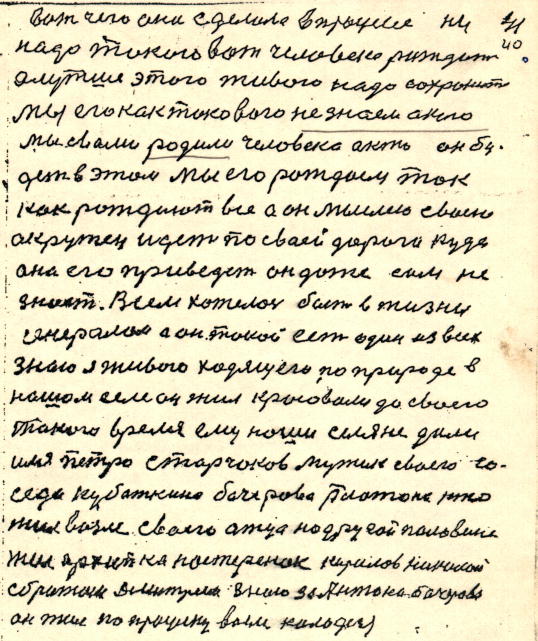 вот чего она сделала в процисе ни 21
надо токого вот человека рождат 40
а лутше этого живого надо сохронит
мы его как токового не знаем а кого
мы с вами родили человека а кто он бу-
дет в этом мы его рождаем ток
как рождают все а он мыслею своею
окружен идет по своей дорога куда
она его приведет он даже сам не
знает. Всем хотелос быт в жизни
генералом а он токой ест один из всех
знаю я живого ходящего по природе в
нашом селе он жил красовалс до своего
такого время ему наши селяне дали
имя петро старчоков мужик своего со-
седа кубаткина бочерова Платона кто
жил возле своего отца на другой половине
жил архип ка постеренок кирилов
с братом дмитрием знаю за Антока бочерова
он жил по проулку возле колодезя